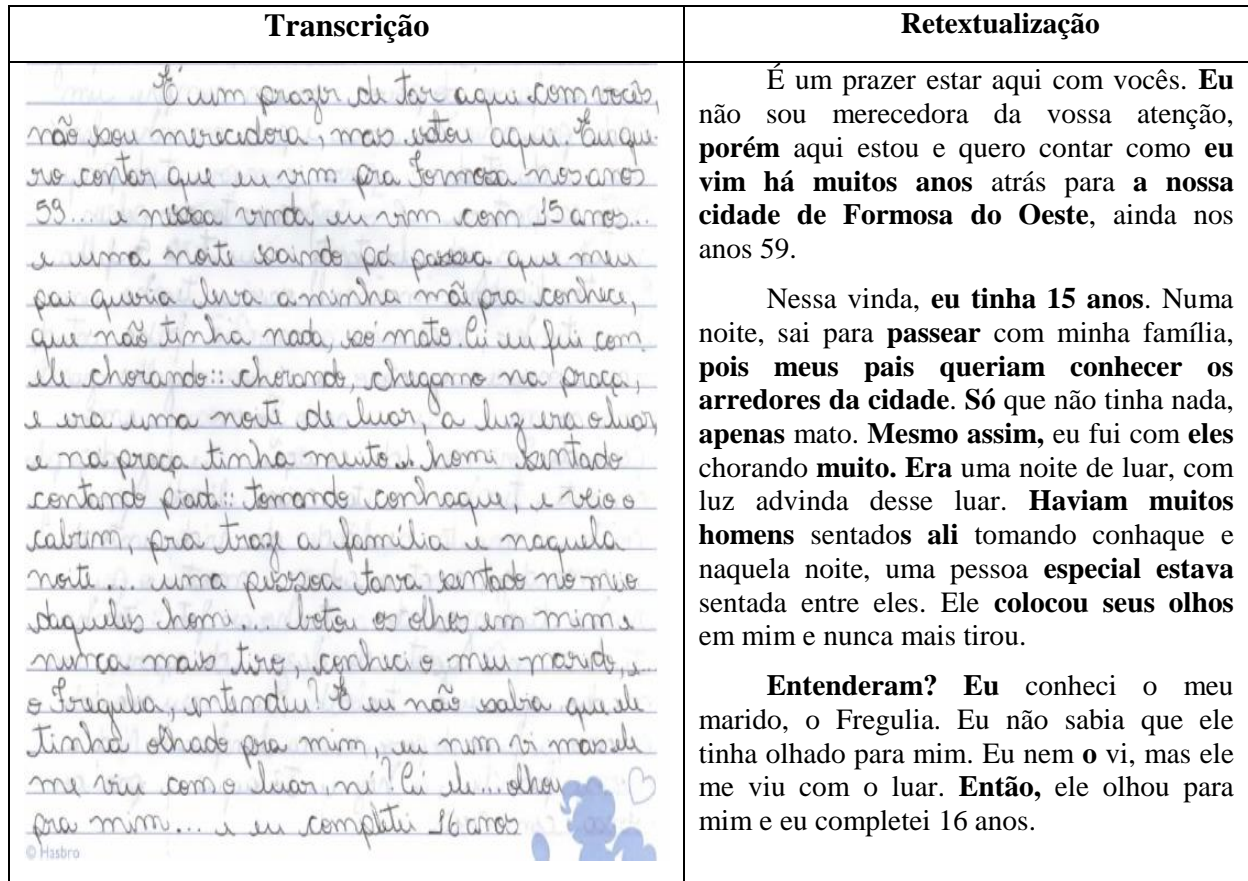 Transcrição
É um prazer de tar aqui com vocês,
não sou merecedora, mas estou aqui. Eu que-
ro contar que eu vim pra Formosa nos anos
59... e nessa vinda eu vim com 15 anos...
e uma noite saindo pá passea que meu
pai queria leva a minha mãi pra conhece,
que não tinha nada, só mato. Ei eu fui com
ele chorando:: chorando, chegamo na praça,
e era uma noite de luar, a luz era o luar
e na praça tinha muito homi sentado
contando piada:: tomando conhaque, e veio o
pra traze a família e naquela
noite... uma pessoa tava sentado no meio
daqueles homi... botou os olhos em mim e
nunca mais tiro, conheci o meu marido, e...
o Fregulia, entendeu? E eu não sabia que ele
tinha olhado pra mim, eu nem vi mas ele
me viu com o luar, né? Ei ele... olhou
pra mim... e eu completei 16 anos
© Hasbro
Retextualização
É um prazer estar aqui com vocês. Eu
não sou merecedora da vossa atenção,
porém aqui estou e quero contar como eu
vim há muitos anos atrás para a nossa
cidade de Formosa do Oeste, ainda nos
anos 59.
Nessa vinda, eu tinha 15 anos. Numa
noite, sai para passear com minha família,
pois meus pais queriam conhecer os
arredores da cidade. Só que não tinha nada,
apenas mato. Mesmo assim, eu fui com eles
chorando muito. Era uma noite de luar, com
luz advinda desse luar. Haviam muitos
homens sentados ali tomando conhaque e
naquela noite, uma pessoa especial estava
sentada entre eles. Ele colocou seus olhos
em mim e nunca mais tirou.
Entenderam? Eu conheci o meu
marido, o Fregulia. Eu não sabia que ele
tinha olhado para mim. Eu nem o vi, mas ele
me viu com o luar. Então, ele olhou para
mim e eu completei 16 anos.